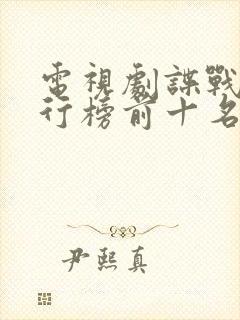 電視劇諜戰
行榜前十名
尹熙真